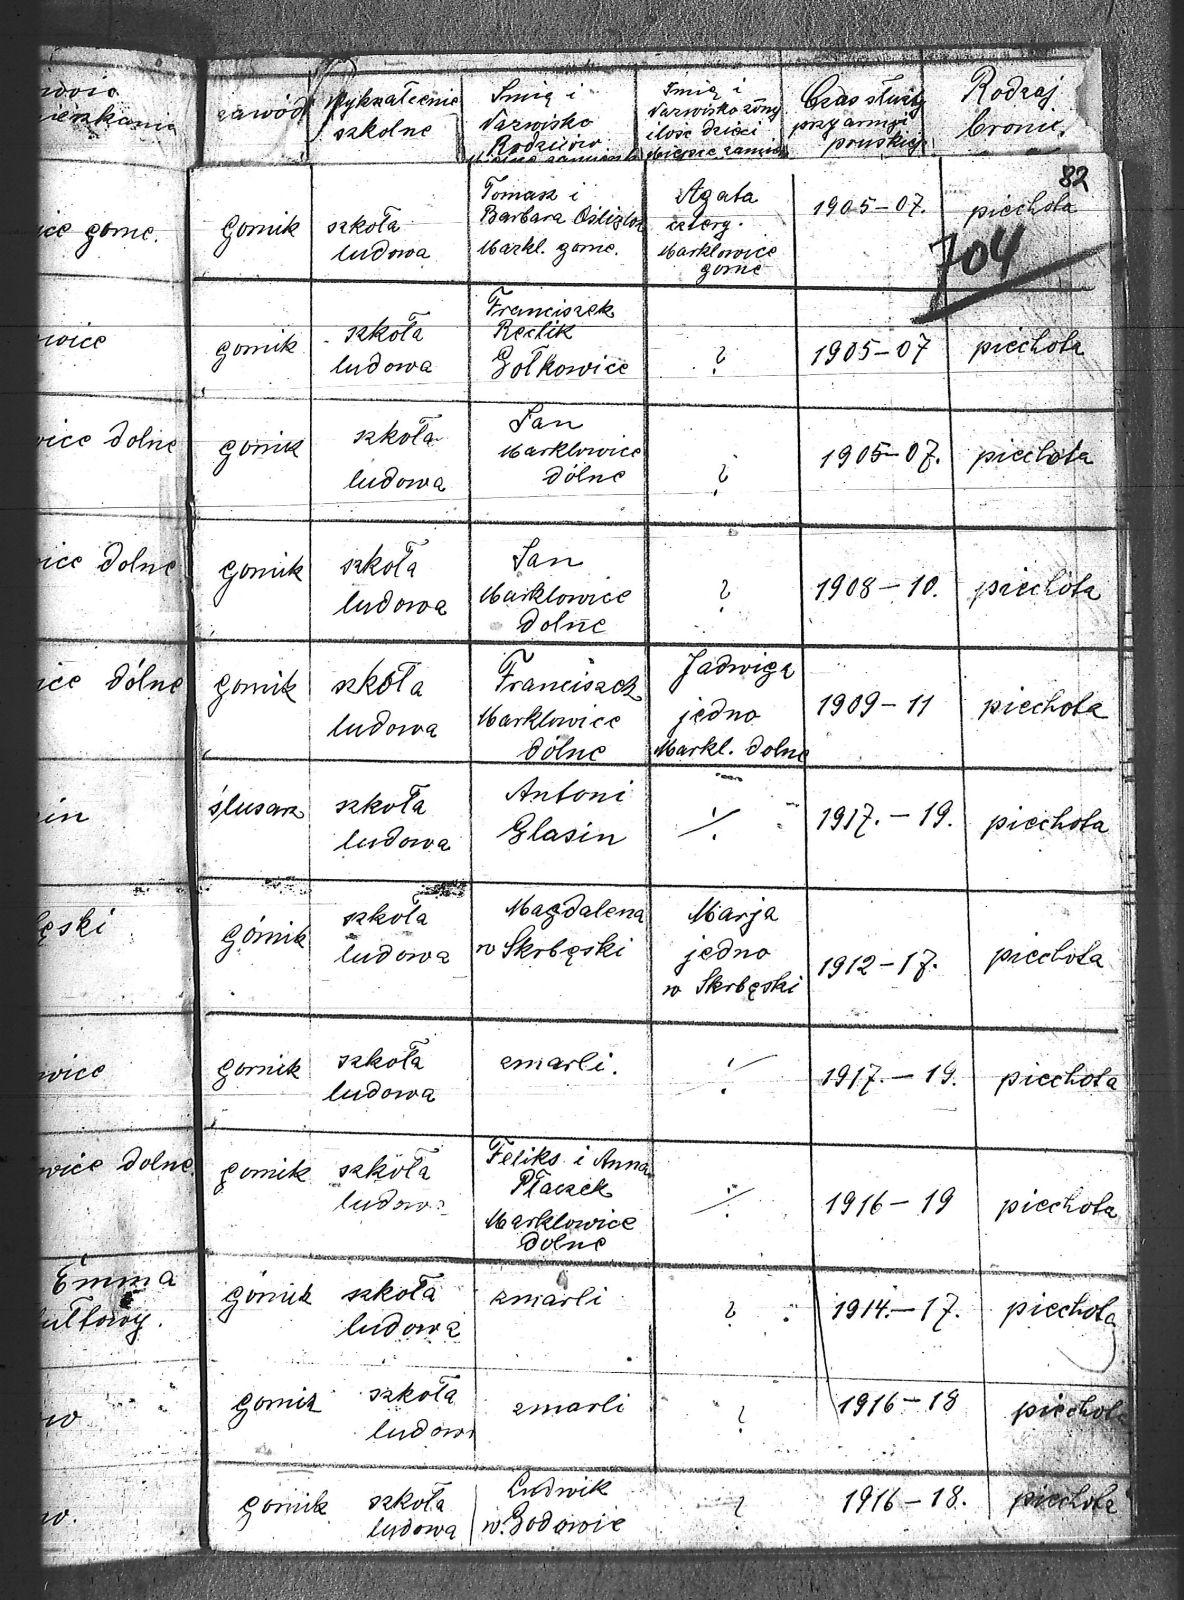 zawód
Wykształcenie
szkolne
Imię i
Nazwisko
Rodziców
Imię i
Nazwisko żony
ilość dzieci
Miejsce zamiesz
Czas służby
przy armji
pruskiej
Rodzaj
broni.
82
704
ice gorne.
Gornik
szkoła
ludowa
Tomasz i
Barbara
Markl. gorne.
Agata
czterg.
Marklowice
gorne
1905-07.
piechota
wice
gornik
szkoła
ludowa
Franciszek
Reclik
Gołkowice
?
1905-07
piechota
wice dolne
gornik
szkoła
ludowa
Jan
Marklowice
dólne
?
1905-07.
piechota
ice dolne
gornik
szkoła
ludowa
Jan
Marklowice
dolne
?
1908-10.
piechota
ice dólne
gornik
szkóła
ludowa
Franciszek
Marklowice
dólne
Jadwiga
jedno
Markl. dolne
1909-11
piechota
in
ślusarz
szkoła
ludowa
Antoni
Glasin
·/.
1917.-19.
piechota
ęski
górnik
szkoła
ludowa
Magdalena
w Skrbęski
Marja
jedno
w Skrbęski
1912-17.
piechota
wice
gornik
szkoła
ludowa
zmarli.
·/.
1917.-19.
piechota
wice dolne.
gornik
szkoła
ludow
Feliks i Anna
Płaczek
Marklowice
dolne
·/.
1916-19
piechota
Emma
ułtowy.
górnik
szkoła
ludowa
zmarli
?
1914.-17.
piechota
w
gornik
szkoła
ludow
zmarli
?
1916-18
piechota
w.
górnik
szkoła
ludowa
Ludwik
w. Godowie
?
1916-18.
piechota